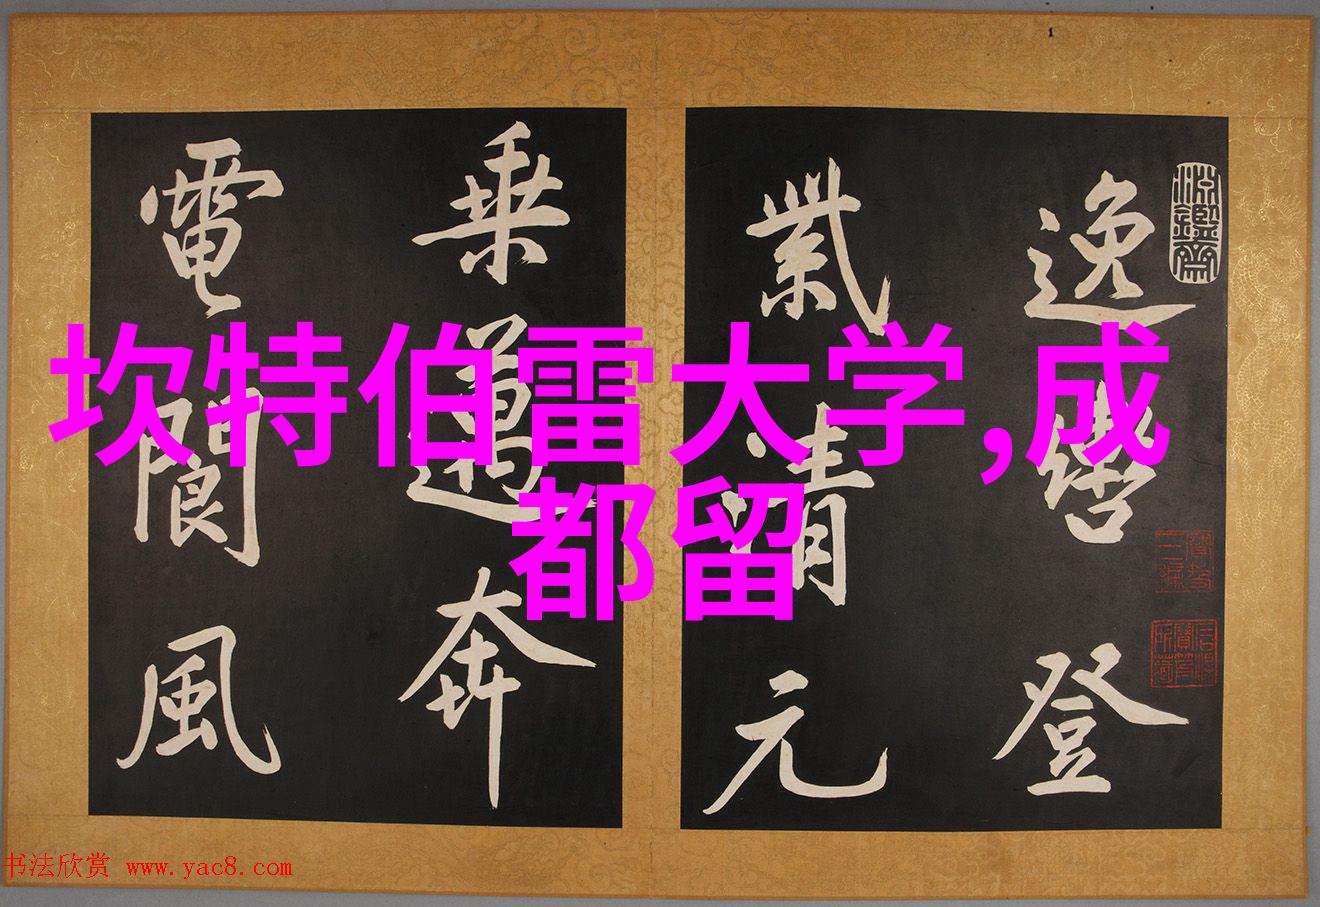 坎特伯雷大学,成
都留
逸辔登
紫清元
乘遐奔
電閬風
书法欣赏 www.yac8.com